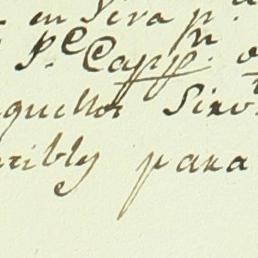 en Siva p.ª
P.e Capp.n
quellos Sirv
ribly para